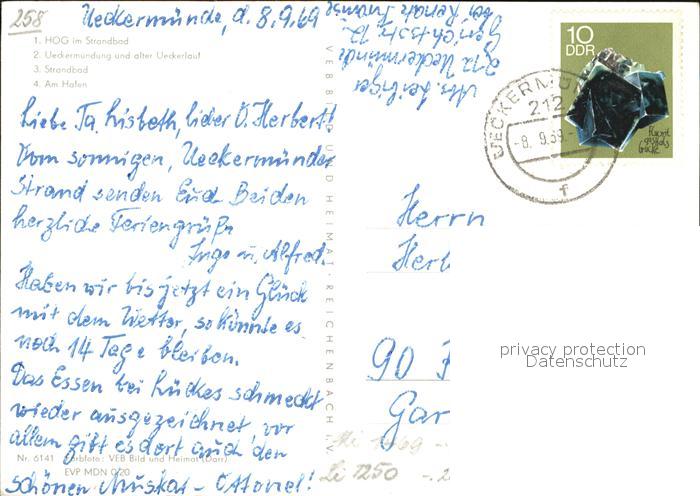 258
Ueckermünde, d. 8.9.69
1. HOG im Strandbad
2. Ueckermündung und alter Ueckerlauf
3. Strandbad
4. Am Hafen
Liebe Ta. Lisbeth, lieber O. Herbert!
Vom sonnigen, Ueckermünder
Strand senden Euch Beiden
herzliche Feriengrüße
Inge u. Alfred.
Haben wir bis jetzt ein Glück
mit dem Wetter, so könnte es
noch 14 Tage bleiben.
Das Essen bei Lückes schmeckt
wieder ausgezeichnet vor
allem gibt es dort auch den
schönen Muskat-Ottonel!
Nr. 6141 Farbfoto: VEB Bild und Heimat (Darr)
EVP MDN 0,20
VEB BILD UND HEIMAT · REICHENBACH i. V.
Abs.
212 Ueckermünde
Gerichtsstr. 12
bei
10
DDR
UECKERMÜNDE
212
-8. 9.69.-
f
Herrn
Her
90
Gar
privacy protection
Datenschutz
Li 1250